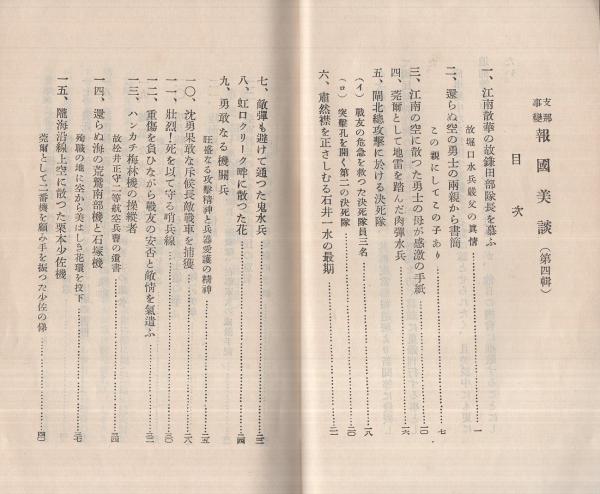 支那事變 報國美談（第四輯）
目次
一、江南散華の故鎌田部隊長を慕ふ……一
故堀口水兵嚴父の眞情
二、還らぬ空の勇士の兩親から書簡……七
この親にしてこの子あり
三、江南の空に散つた勇士の母が感激の手紙……一〇
四、莞爾として地雷を踏んだ肉彈水兵……一六
五、閘北總攻擊に於ける決死隊
（イ）戰友の危急を救つた決死隊員三名……一八
（ロ）突擊孔を開く第二の決死隊……二〇
六、肅然襟を正さしむる石井一水の最期……二一
七、敵彈も避けて通つた鬼水兵……二三
八、虹口クリーク畔に散つた花……二四
九、勇敢なる機關兵
旺盛なる攻擊精神と兵器愛護の精神……二五
一〇、沈勇果敢な斥候長敵戰車を捕獲……二六
一一、壯烈！死を以て守る哨兵線……三〇
一二、重傷を負ひながら戰友の安否と敵情を氣遣ふ……三二
一三、ハンカチ梅林機の操縱者
故松井正守二等航空兵曹の遺書……三四
一四、還らぬ海の荒鷲南部機と石塚機
殉職の地に空から美はしき花環を投下……三七
一五、隴海沿線上空に散つた栗本少佐機
莞爾として二番機を顧み手を振つた少佐の俤……四一